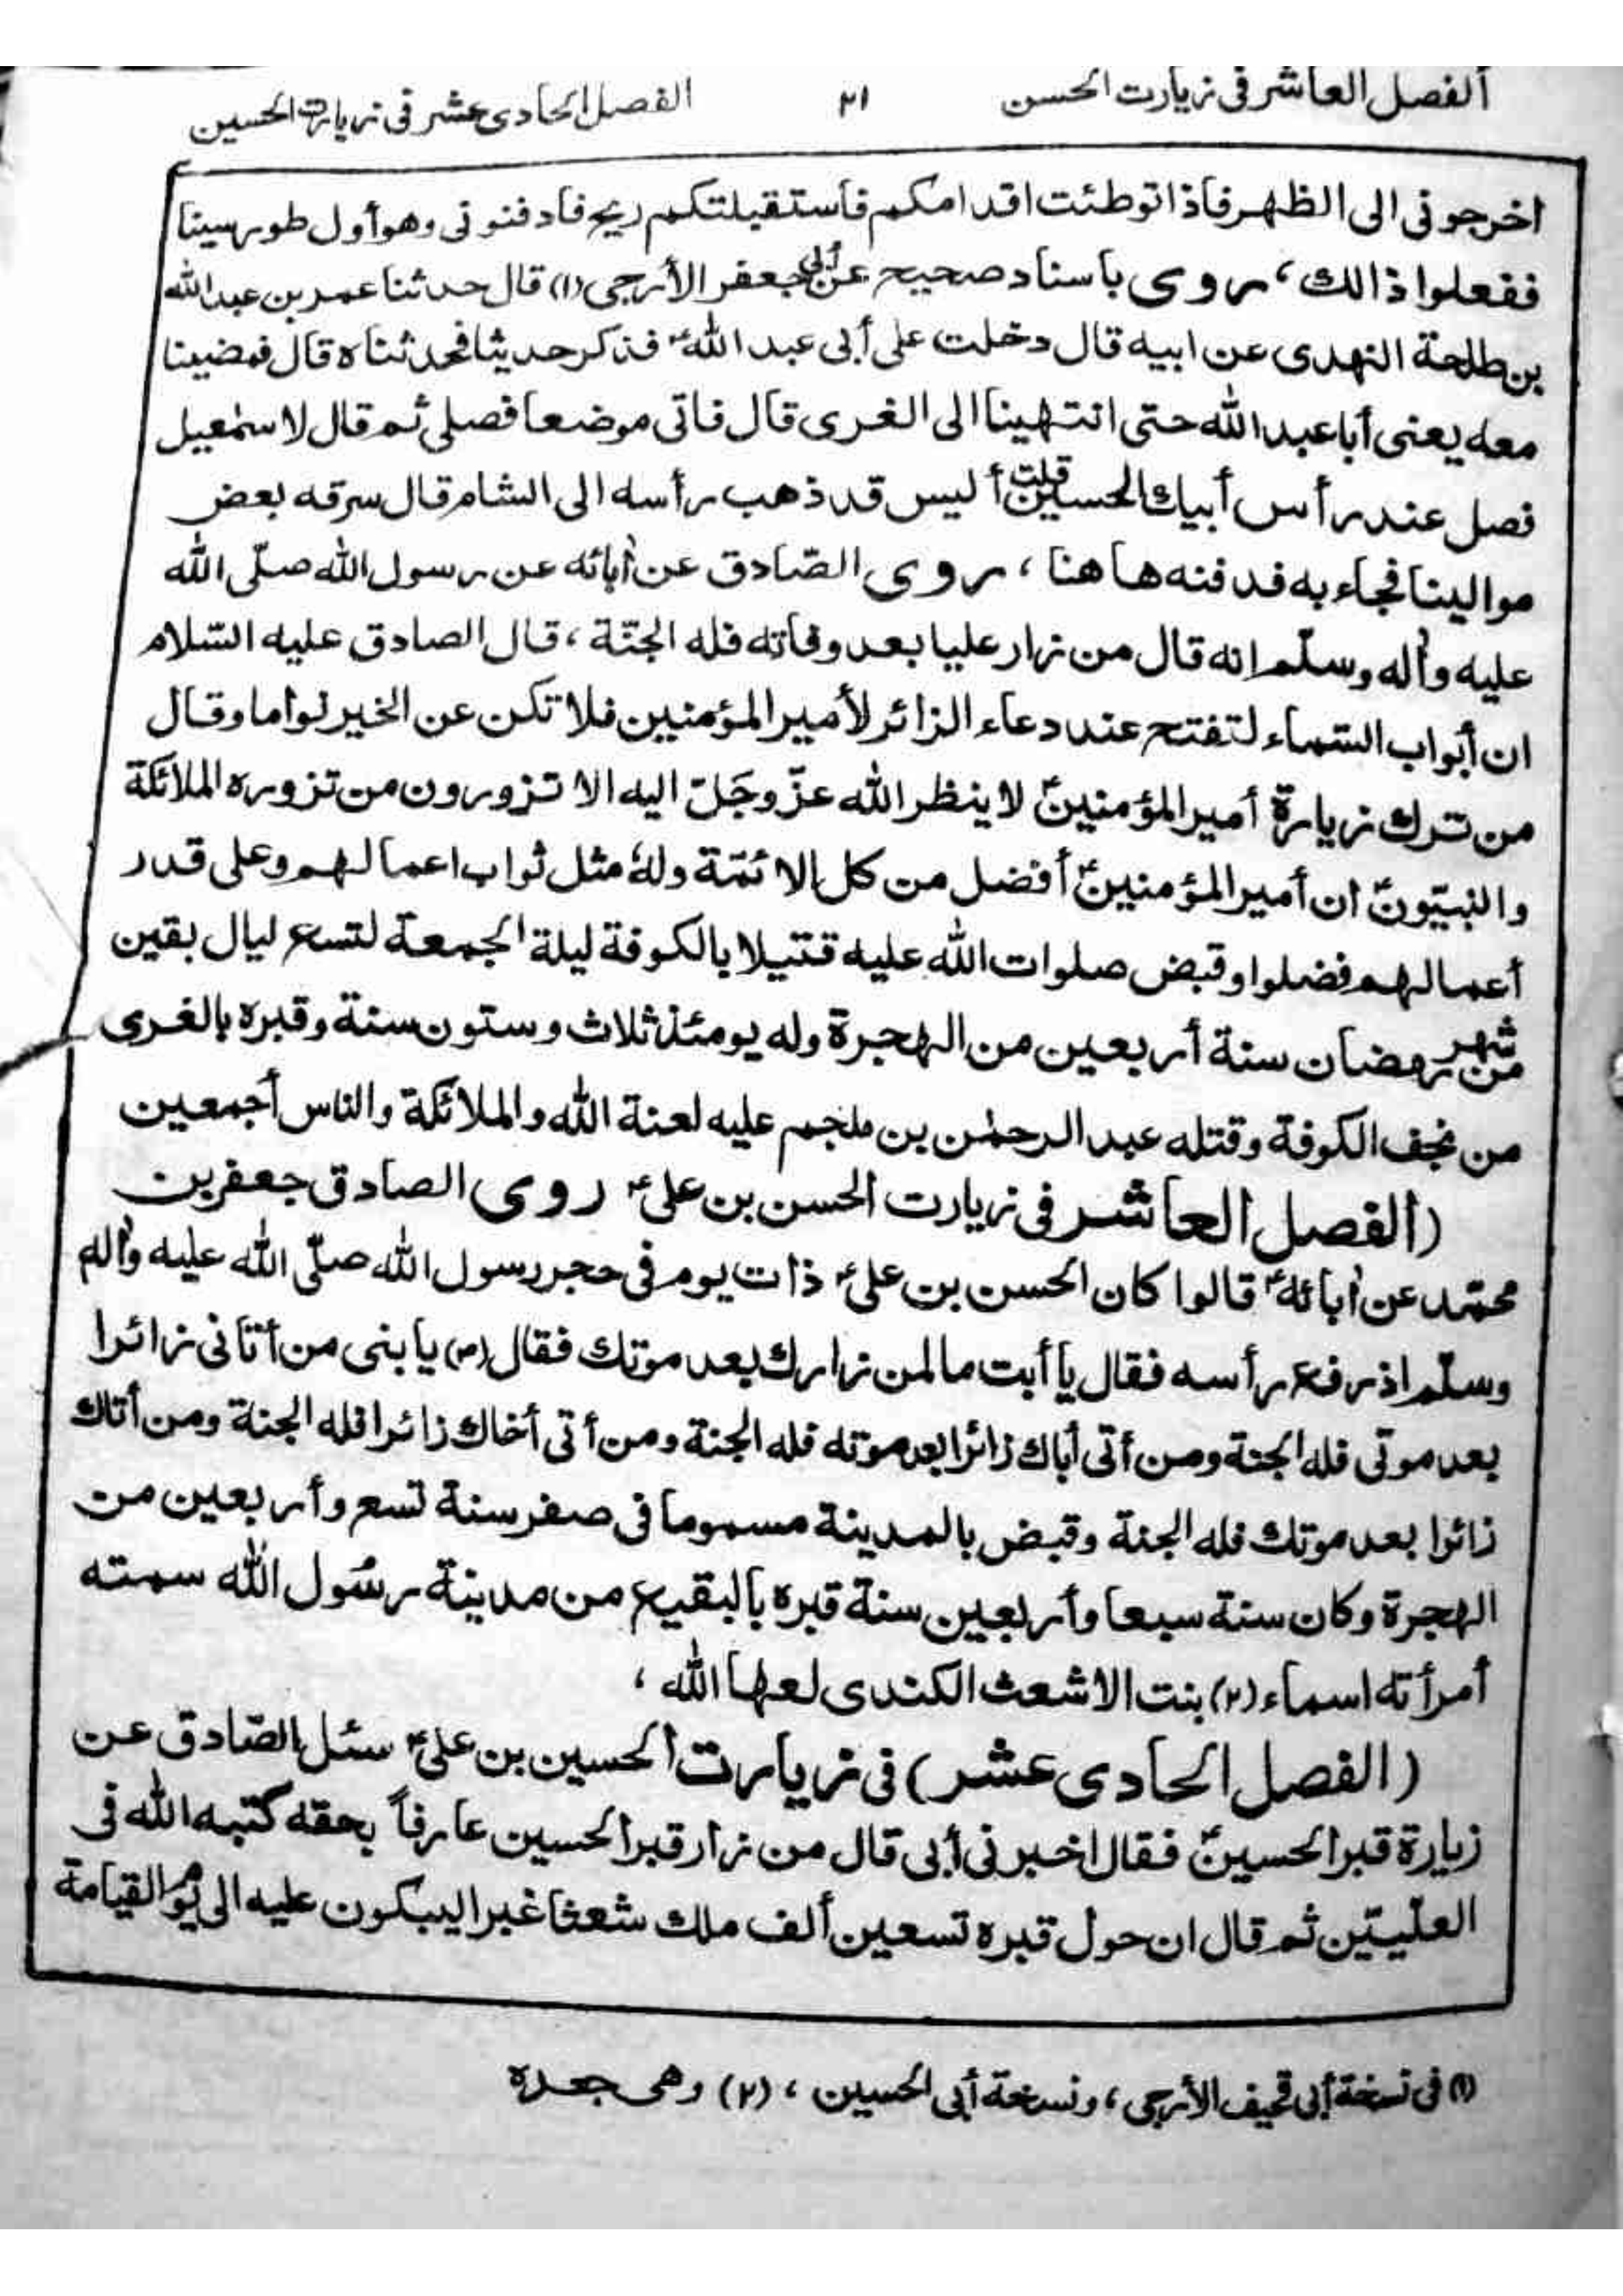 الفصل العاشر فى زيارت الحسن ٢١ الفصل الحادى عشر فى زيارت الحسين
اخرجونى الى الظهر فاذا توطئت اقدامكم فاستقبلتكم ريح فادفنونى وهو أول طور سينا
ففعلوا ذالك ، روى باسناد صحيح عن أبى جعفر الأرجى (١) قال حدثنا عمر بن عبد الله
بن طلحة النهدى عن ابيه قال دخلت على أبى عبد الله ؑ فذكر حديثا فحدثناه قال فمضينا
معه يعنى أبا عبد الله حتى انتهينا الى الغرى قال فاتى موضعا فصلى ثم قال لاسمٰعيل
فصل عند رأس أبيك الحسين قلت أليس قد ذهب برأسه الى الشام قال سرقه بعض
موالينا فجاء به فدفنه هاهنا ، روى الصّادق عن أبائه عن رسول الله صلّى الله
عليه وأله وسلّم انه قال من زار عليا بعد وفاته فله الجنّة ، قال الصادق عليه السّلام
ان أبواب السّماء لتفتح عند دعاء الزائر لأمير المؤمنين فلا تكن عن الخير نواما وقال
من ترك زيارة أمير المؤمنينؑ لا ينظر الله عزّ وجَلّ اليه الا تزورون من تزوره الملائكة
والنبيّونؑ ان أمير المؤمنينؑ أفضل من كل الائمّة ولهٗ مثل ثواب اعمالهم وعلى قدر
أعمالهم فضلوا وقبض صلوات الله عليه قتيلا بالكوفة ليلة الجمعة لتسع ليال بقين
من شهر رمضان سنة أربعين من الهجرة وله يومئذ ثلاث وستون سنة وقبره بالغرى
من نجف الكوفة وقتله عبد الرحمٰن بن ملجم عليه لعنة الله والملائكة والناس أجمعين
(الفصل العاشر فى زيارت الحسن بن على ؑ روى الصادق جعفر بن
محمّد عن أبائه ؑ قالوا كان الحسن بن على ؑ ذات يوم فى حجر رسول الله صلّى الله عليه وأله
وسلّم اذ رفع رأسه فقال يا أبت ما لمن زارك بعد موتك فقال (ص) يا بنى من أتانى زائرا
بعد موتى فله الجنة ومن أتى أباك زائرا بعد موته فله الجنة ومن أتى أخاك زائرا فله الجنة ومن أتاك
زائرا بعد موتك فله الجنة وقبض بالمدينة مسموما فى صفر سنة تسع وأربعين من
الهجرة وكان سنة سبعا وأربعين سنة قبره بالبقيع من مدينة رسُول الله سمته
أمرأته اسماء (٢) بنت الاشعث الكندى لعنها الله ،
(الفصل الحادى عشر) فى زيارت الحسين بن على ؑ سئل الصّادق عن
زيارة قبر الحسينؑ فقال اخبرنى أبى قال من زار قبر الحسين عارفاً بحقه كتبه الله فى
العلّييّن ثم قال ان حول قبره تسعين ألف ملك شعثا غبرا يبكون عليه الى يوم القيامة
(١) فى نسخة أبى قحيف الأرجى ، ونسخة أبى الحسين ، (٢) وهى جعده